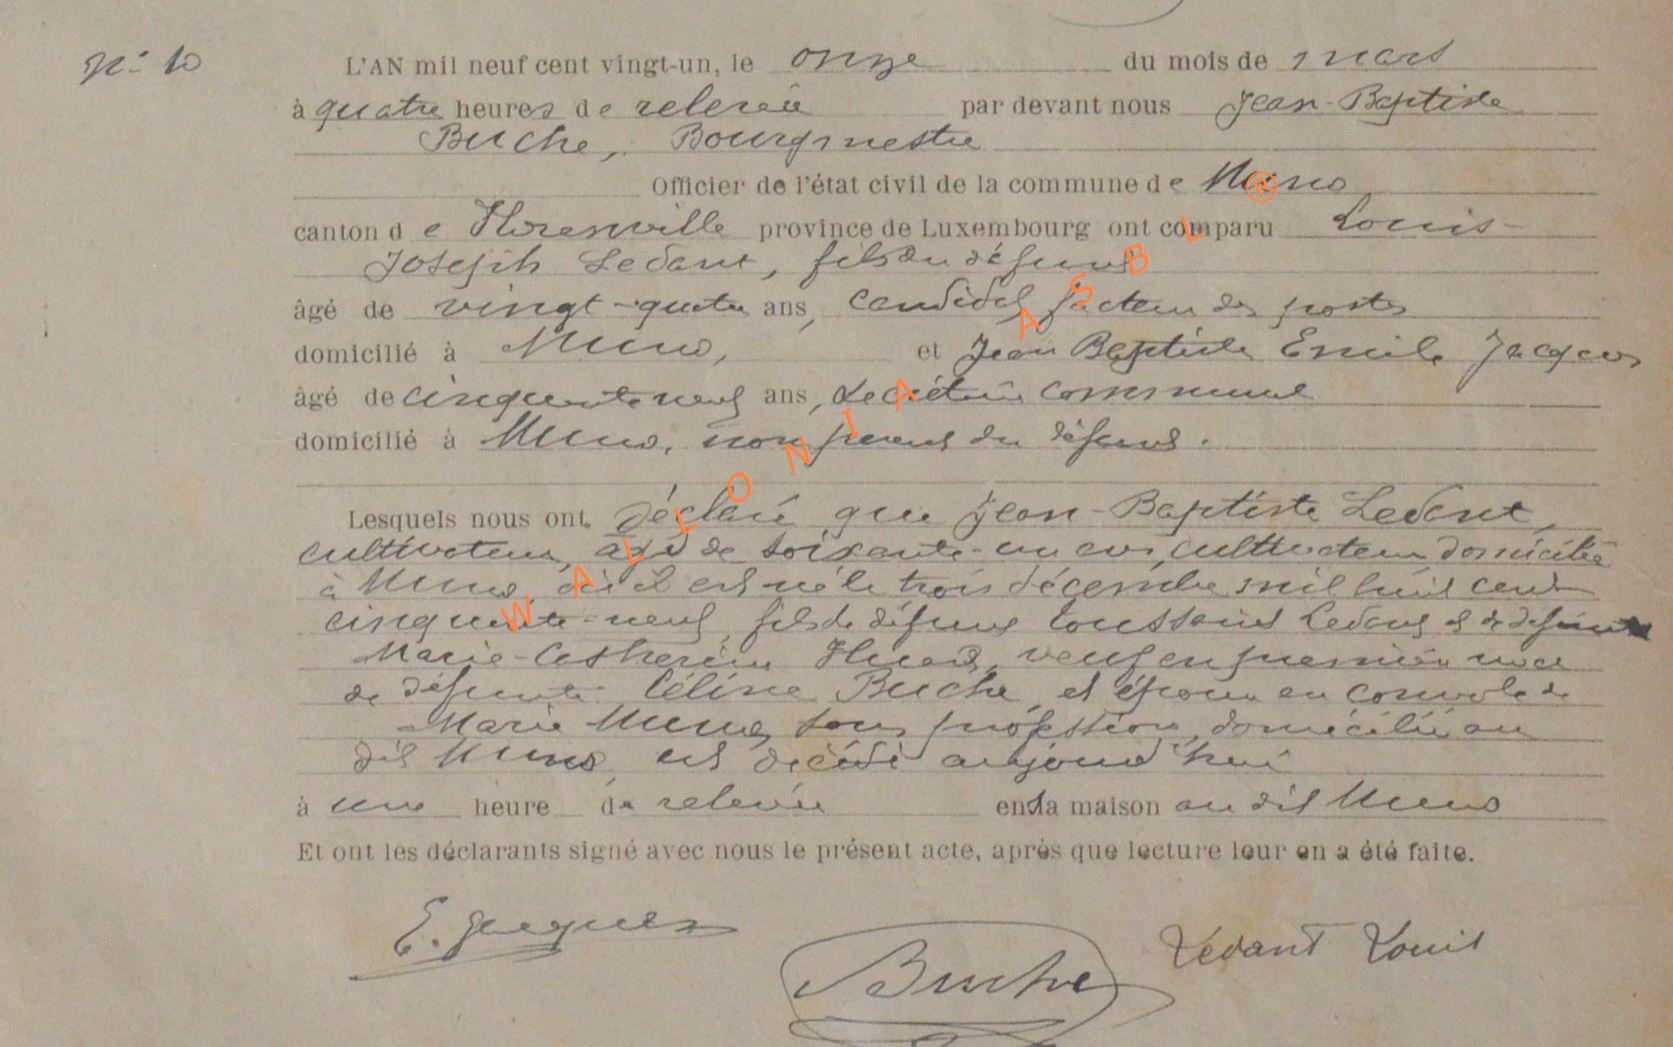 N° 10
L'AN mil neuf cent vingt-un, le onze du mois de mars
à quatre heures de relevée par devant nous Jean-Baptiste
Buche, Bourgmestre
Officier de l'état civil de la commune de Muno
canton de Florenville province de Luxembourg ont comparu Louis-
Joseph Ledant, fils du défunt
âgé de vingt-quatre ans, candidat facteur des postes
domicilié à Muno, et Jean Baptiste Emile Jacques
âgé de cinquante neuf ans, secrétaire communal
domicilié à Muno, non parent du défunt.
Lesquels nous ont déclaré que Jean-Baptiste Ledant,
cultivateur, âgé de soixante-un ans, cultivateur domicilié
à Muno, où il est né le trois décembre mil huit cent
cinquante-neuf, fils de défunt Toussaint Ledant et de défunte
Marie-Catherine Huard, veuf en première noce
de défunte Céline Buche, et époux en convole de
Marie sans profession, domiciliée au
dit Muno, est décédé aujourd'hui
à une heure de relevée en sa maison au dit Muno
Et ont les déclarants signé avec nous le présent acte, après que lecture leur en a été faite.
E. Jacques
Buche
Ledant Louis
WALLONIA ASBL ®